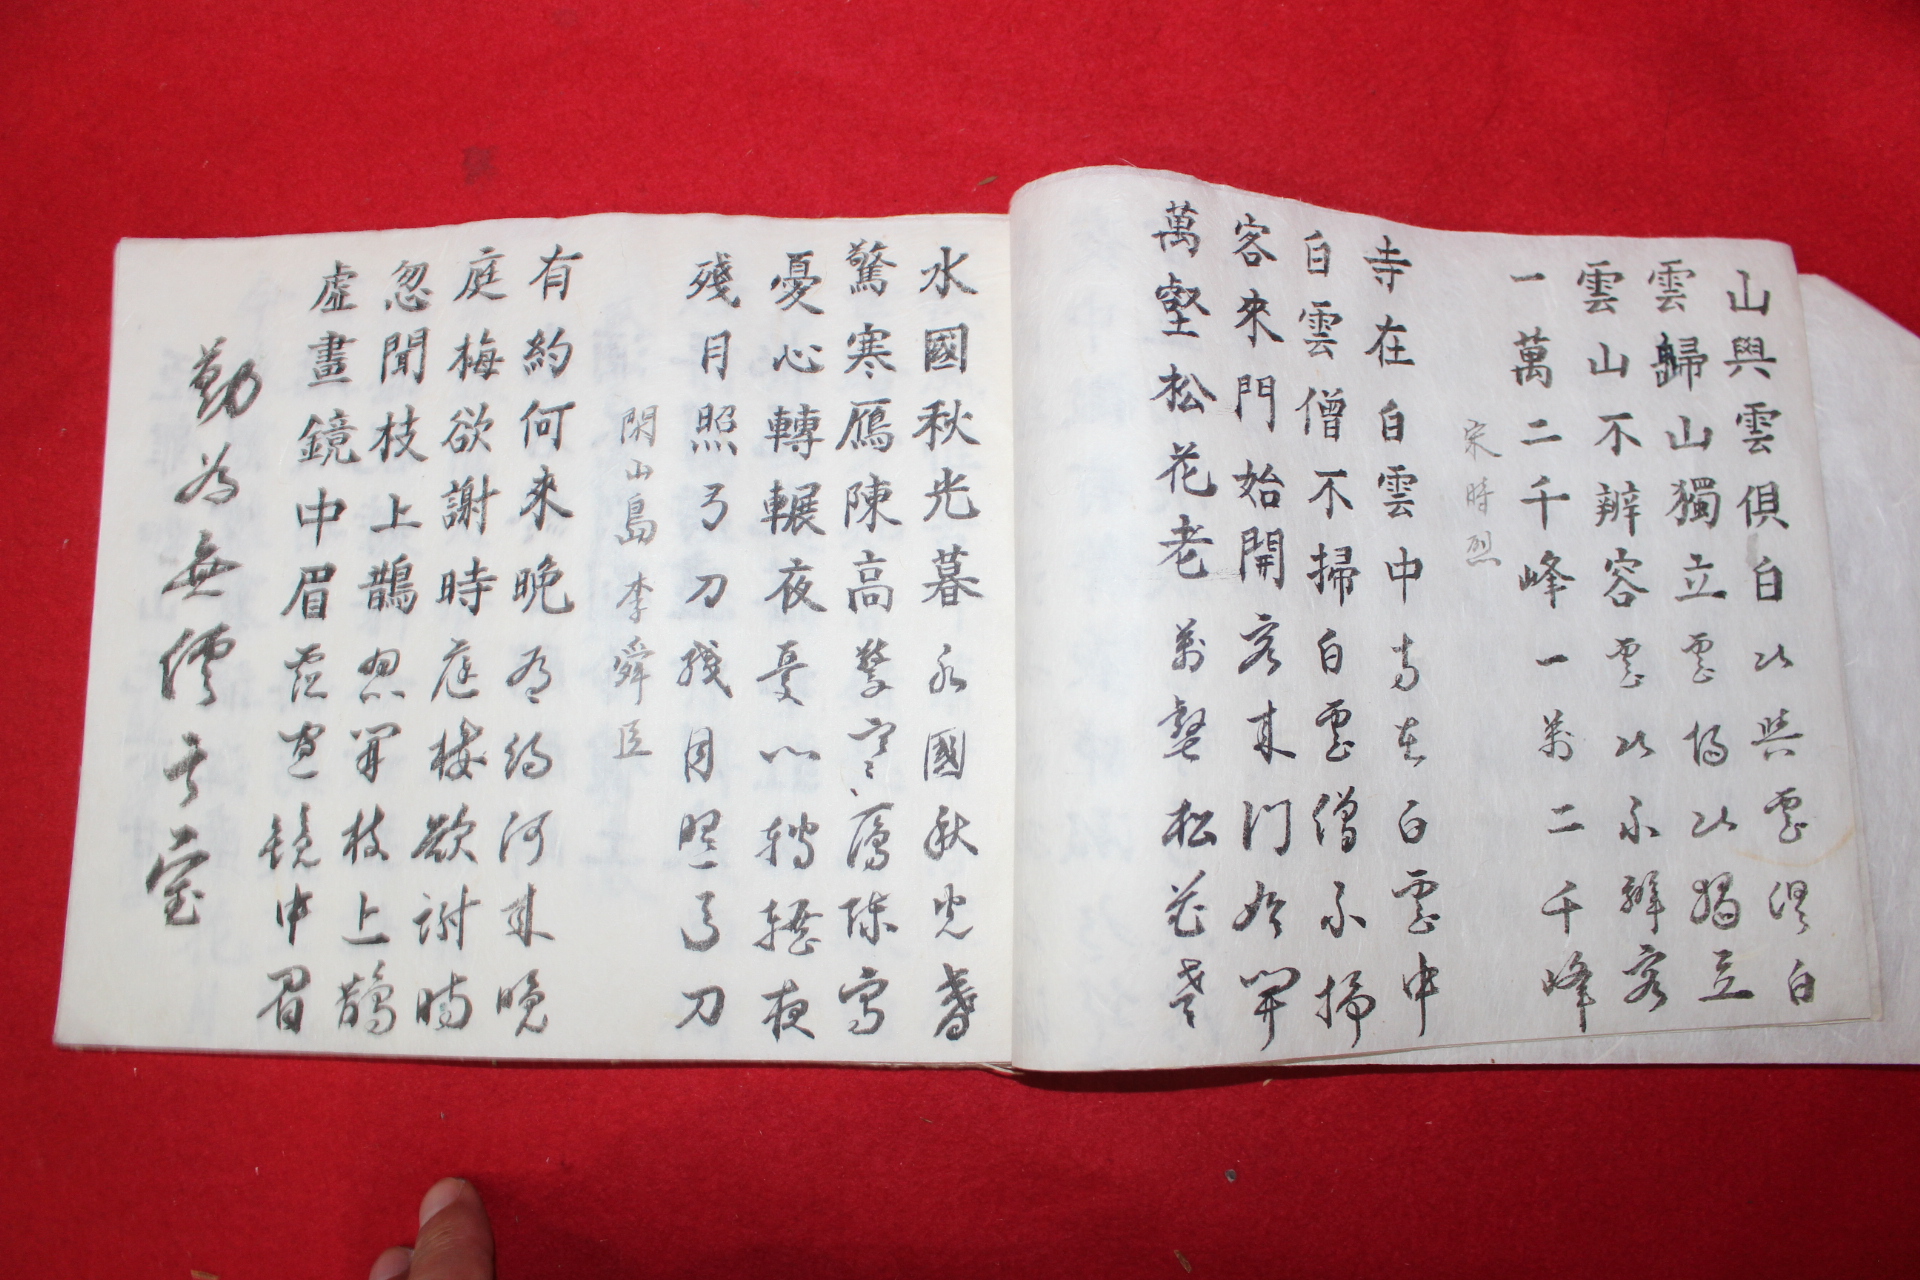 山與雲俱白山與雲俱白
雲歸山獨立雲歸山獨立
雲山不辨容雲山不辨容
一萬二千峰一萬二千峰
宋時烈
寺在白雲中寺在白雲中
白雲僧不掃白雲僧不掃
客來門始開客來門始開
萬壑松花老萬壑松花老
水國秋光暮水國秋光暮
驚寒鴈陳高驚寒鴈陳高
憂心轉輾夜憂心轉輾夜
殘月照弓刀殘月照弓刀
閑山島 李舜臣
有約何來晚有約何來晚
庭梅欲謝時庭梅欲謝時
忽聞枝上鵲忽聞枝上鵲
虛畫鏡中眉虛畫鏡中眉
勤為無價之宝